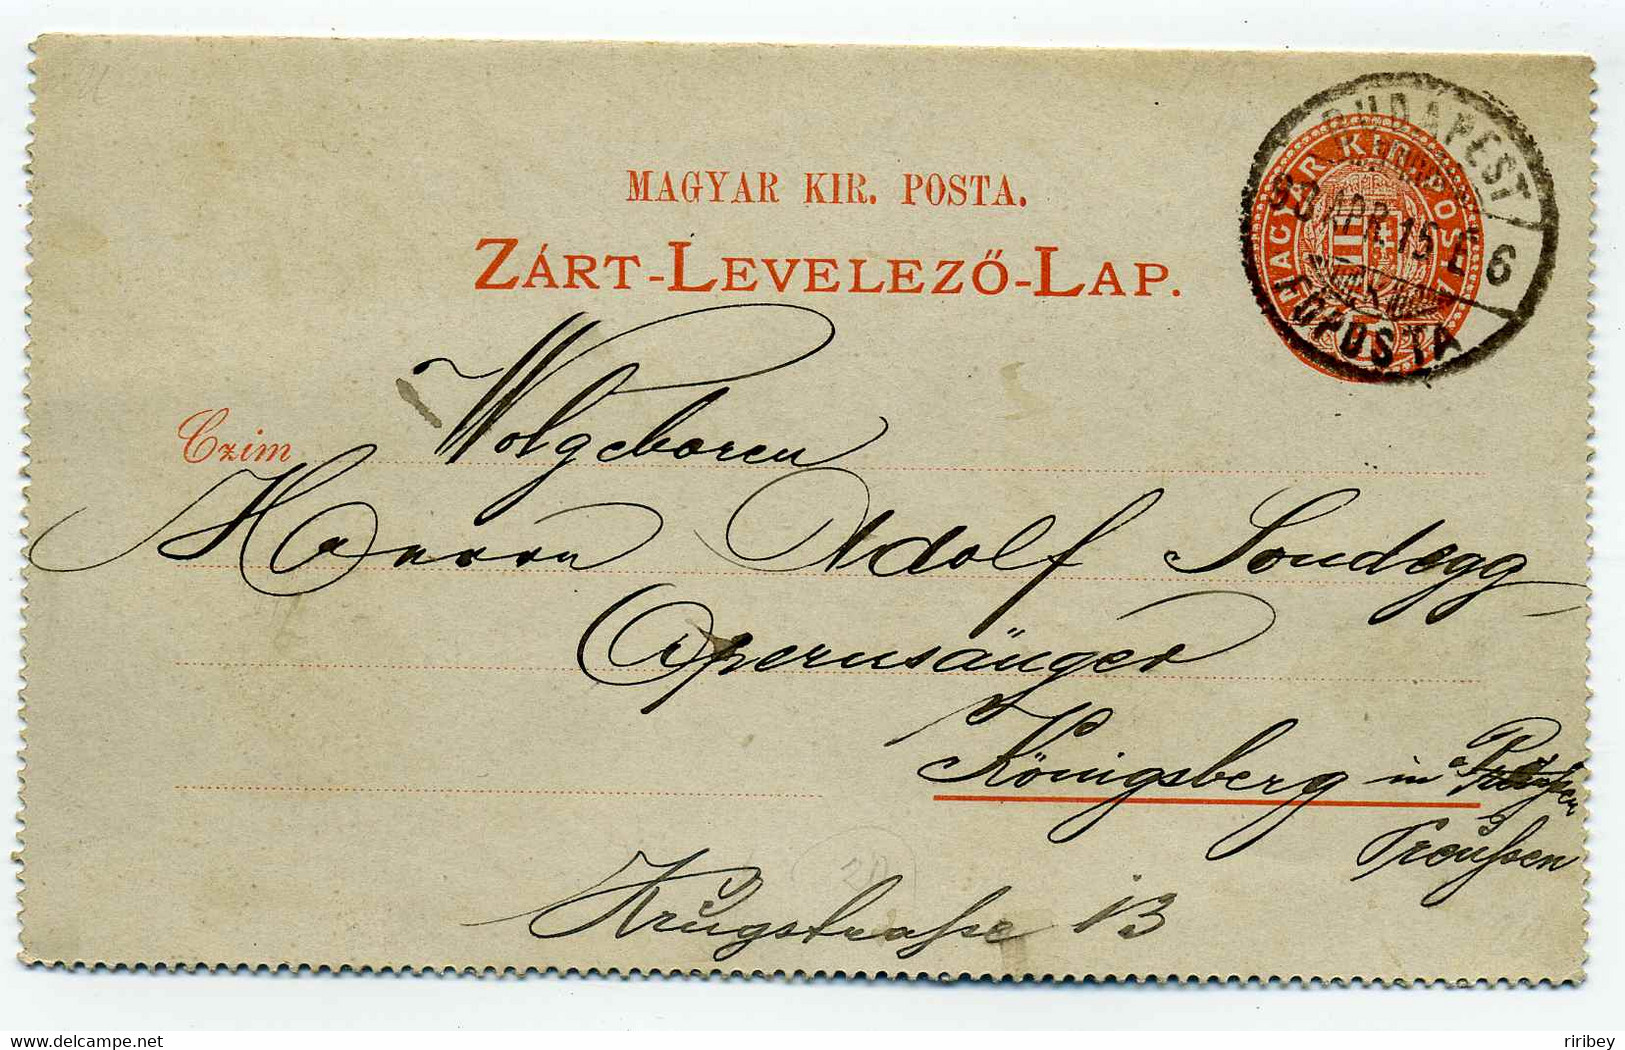 MAGYAR KIR. POSTA.
ZÁRT-LEVELEZŐ-LAP.
MAGYAR KIR. POSTA
5
BUDAPEST
90 APR. 15 E 6
FŐPOSTA
Czim
Wolgeboren
Herrn Adolf Sondegg
Opernsänger
Königsberg in
Preußen
Krugstraße 13
delcampe.net
riribey